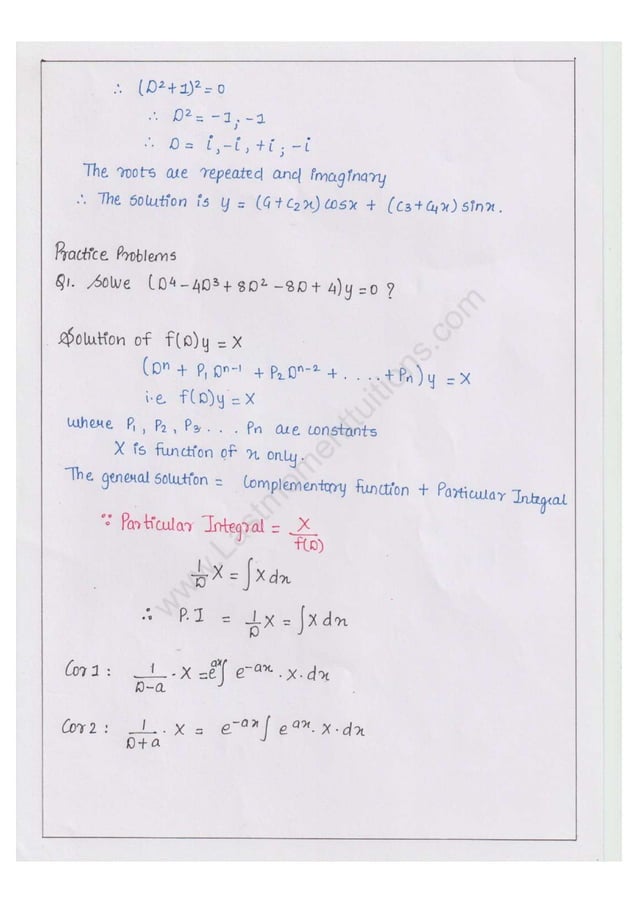 ∴ (D²+1)² = 0
∴ D² = -1, -1
∴ D = i, -i, +i, -i
The roots are repeated and imaginary
∴ The solution is y = (C₁+C₂x) cosx + (C₃+C₄x) sinx.
Practice Problems
Q1. Solve (D⁴ - 4D³ + 8D² - 8D + 4)y = 0 ?
Solution of f(D)y = X
(Dⁿ + P₁ Dⁿ⁻¹ + P₂ Dⁿ⁻² + . . . . + Pₙ) y = X
i.e f(D)y = X
where P₁, P₂, P₃ . . . Pn are constants
X is function of x only.
The general solution = Complementary function + Particular Integral
∵ Particular Integral = X / f(D)
1/D X = ∫X dx
∴ P.I = 1/D X = ∫X dx
Cor 1 : 1/(D-a) . X = e^ax ∫ e^-ax . X . dx
Cor 2 : 1/(D+a) . X = e^-ax ∫ e^ax . X . dx
www.Lastmomenttuitions.com